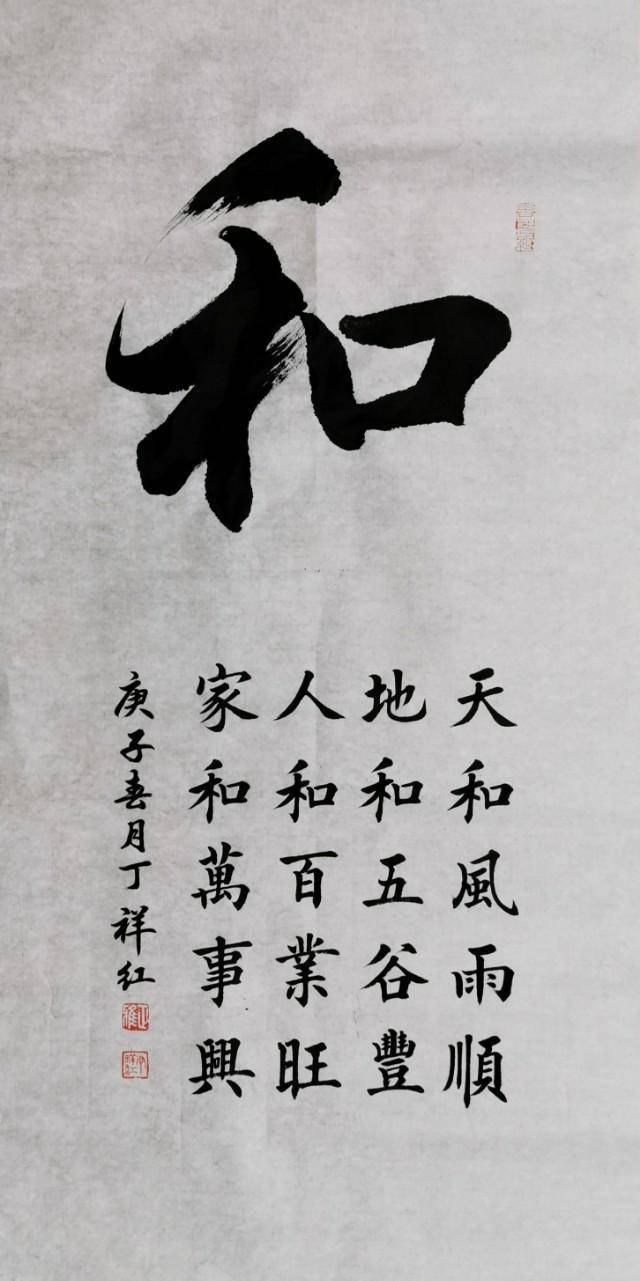 和
天和風雨順
地和五谷豐
人和百業旺
家和萬事興
庚子春月丁祥红